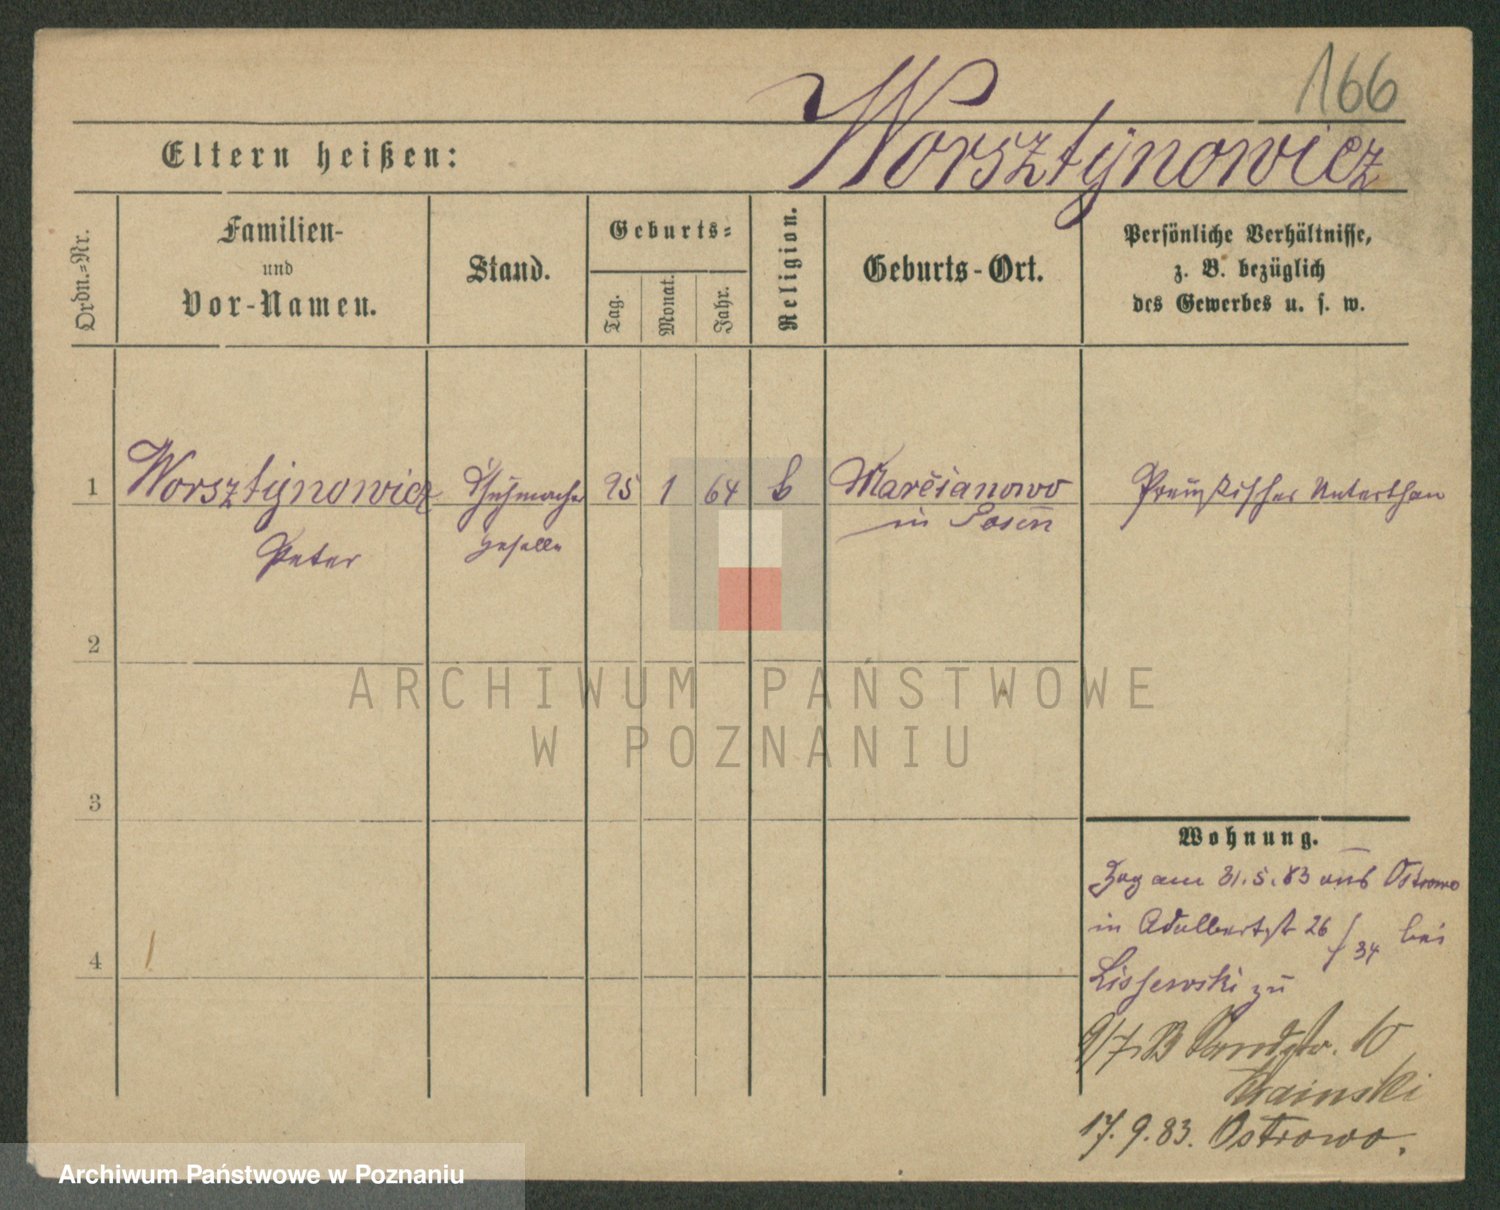 166
Worsztynowicz
Eltern heißen:
Ordn.=Nr.
Familien-
und
Vor-Namen.
Stand.
Geburts=
Tag.
Monat.
Jahr.
Religion.
Geburts-Ort.
Persönliche Verhältnisse,
z. B. bezüglich
des Gewerbes u. s. w.
1 Worsztynowicz Schuhmacher 25 1 64 Marcianowo Preußischer Unterthan
Peter geselle in Posen
2
3
4
Wohnung.
Zog am 31.5.83 aus Ostrowo
in Adalbertstr 26/34 bei
Lissewski zu
9/7 83 10
Krainski
17.9.83. Ostrowo.
ARCHIWUM PAŃSTWOWE
W POZNANIU
Archiwum Państwowe w Poznaniu